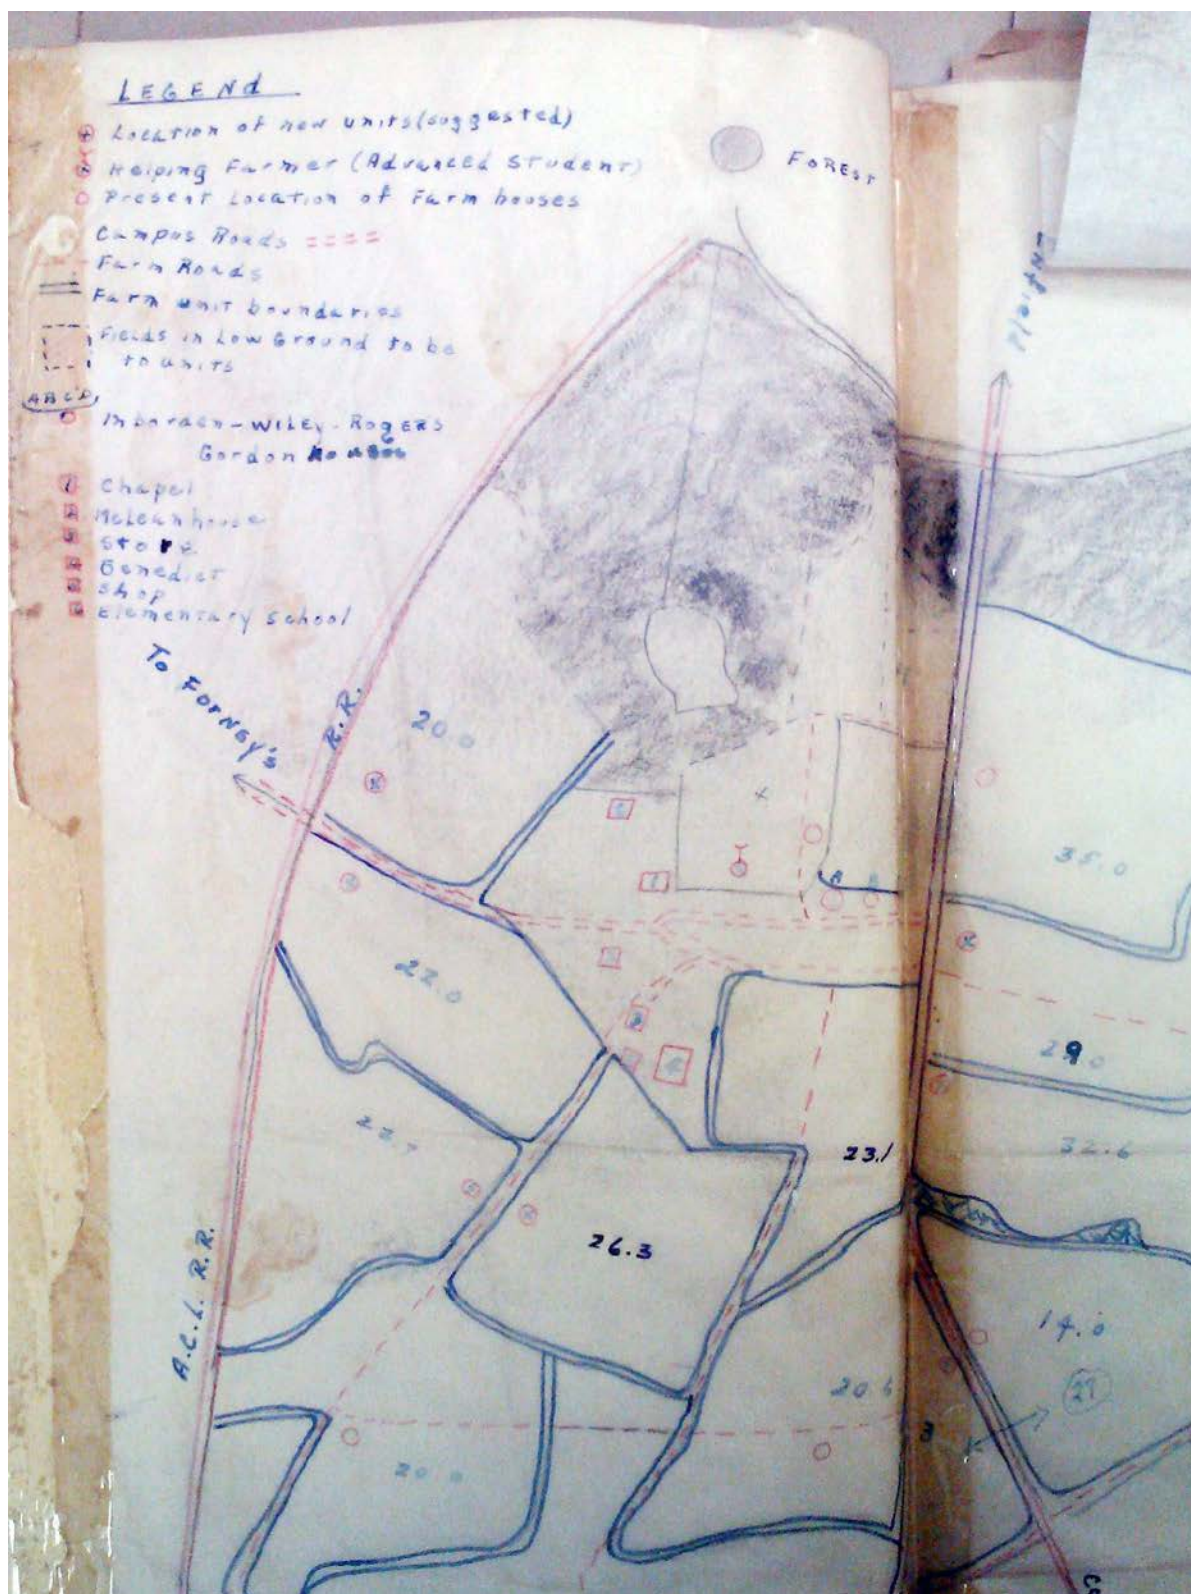 LEGEND
Location of new units (suggested)
Helping Farmer (Advanced Student)
Present Location of Farm houses
Campus Roads
Farm Roads
Farm unit boundaries
Fields in Low Ground to be
to units
ABCD
Inborden-WILEY-ROGERS
Gordon
Chapel
McLean house
Store
Benedict
Shop
Elementary school
FOREST
To FORNEY'S
R.R.
20.0
35.0
22.0
29.0
22.7
23.1
32.6
26.3
A.C.L.R.R.
14.0
20.6
27
3
20.0